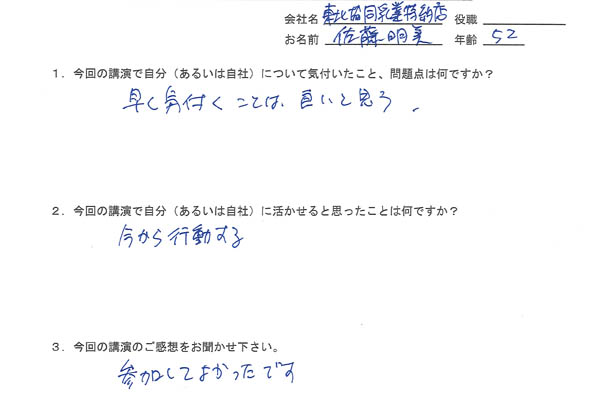 会社名 東北協同乳業特約店 役職
お名前 佐藤明美 年齢 52
1．今回の講演で自分（あるいは自社）について気付いたこと、問題点は何ですか？
早く気付くことは、良いと思う。
2．今回の講演で自分（あるいは自社）に活かせると思ったことは何ですか？
今から行動する
3．今回の講演のご感想をお聞かせ下さい。
参加してよかったです